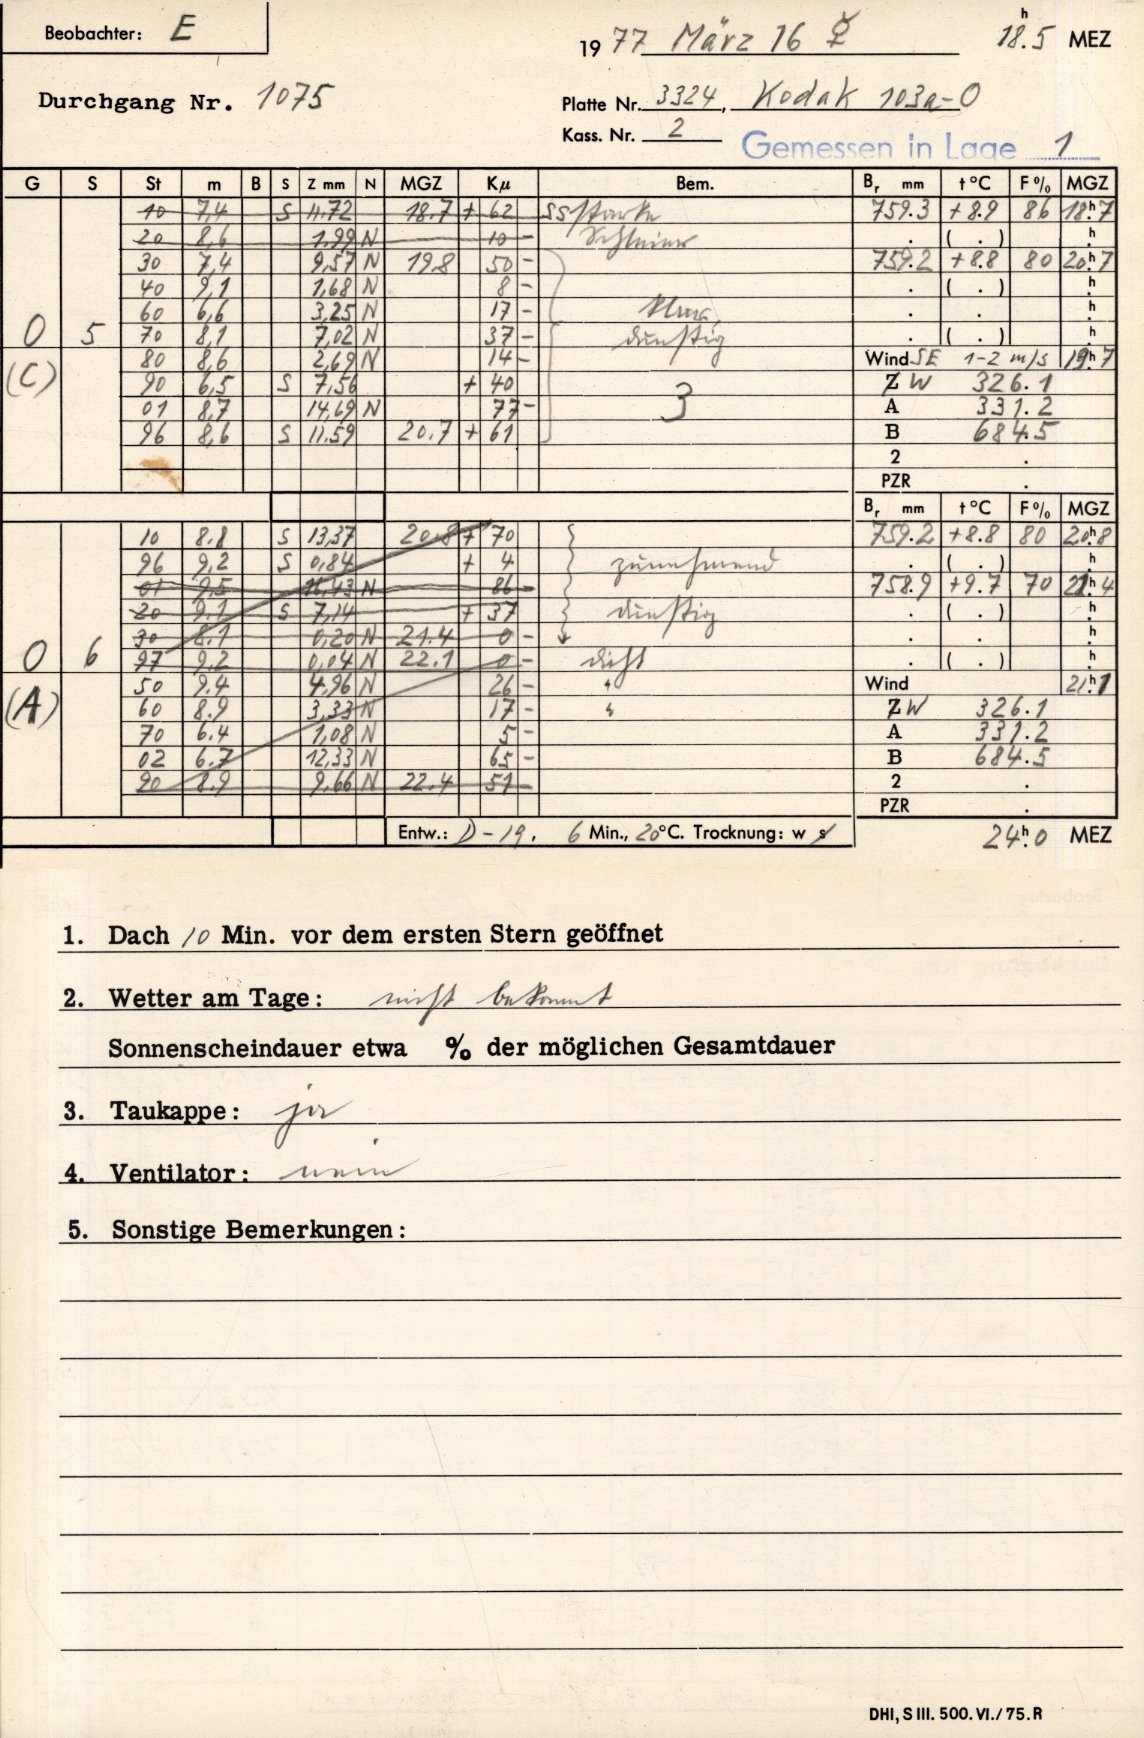 Beobachter: E
19 77 März 16 ☿ 18ʰ.5 MEZ
Durchgang Nr. 1075
Platte Nr. 3324, Kodak 103a-O
Kass. Nr. 2
Gemessen in Lage 1
G S St m B S Z mm N MGZ Kμ Bem. Bᵣ mm t °C F % MGZ
10 7,4 S 11.72 18.7 + 62 SS starke 759.3 +8.9 86 18ʰ.7
20 8,6 1.99 N 10 - Schleier . ( . ) ʰ.
30 7,4 9,57 N 19.8 50 - 759.2 +8.8 80 20ʰ.7
40 9,1 1,68 N 8 - . ( . ) ʰ.
60 6,6 3,25 N 17 - . . ʰ.
O 5 70 8,1 7,02 N 37 - dunstig . ( . ) ʰ.
(C) 80 8,6 2,69 N 14 - Wind SE 1-2 m/s 19ʰ.7
90 6,5 S 7,56 + 40 3 Z W 326.1
01 8,7 14,69 N 77 - A 331.2
96 8,6 S 11.59 20.7 + 61 B 684.5
2 .
PZR .
Bᵣ mm t °C F % MGZ
10 8.8 S 13,37 20.8 + 70 759.2 +8.8 80 20ʰ.8
96 9,2 S 0,84 + 4 zunehmend . ( . ) ʰ.
01 9,5 16,43 N 86 - 758.9 +9.7 70 21ʰ.4
20 9,1 S 7,14 + 37 dunstig . ( . ) ʰ.
30 8.1 0,20 N 21.4 0 - . . ʰ.
O 6 97 9,2 0,04 N 22.1 0 - dicht . ( . ) ʰ.
(A) 50 9.4 4.96 N 26 - " Wind 21ʰ.1
60 8.9 3,33 N 17 - " Z W 326.1
70 6.4 1,08 N 5 - A 331.2
02 6.7 12,33 N 65 - B 684.5
90 8.9 9,66 N 22.4 51 - 2 .
PZR .
Entw.: D-19. 6 Min., 20°C. Trocknung: w s 24ʰ.0 MEZ
1. Dach 10 Min. vor dem ersten Stern geöffnet
2. Wetter am Tage: nicht bekannt
Sonnenscheindauer etwa % der möglichen Gesamtdauer
3. Taukappe: ja
4. Ventilator: nein
5. Sonstige Bemerkungen:
DHI, S III. 500. VI./75. R